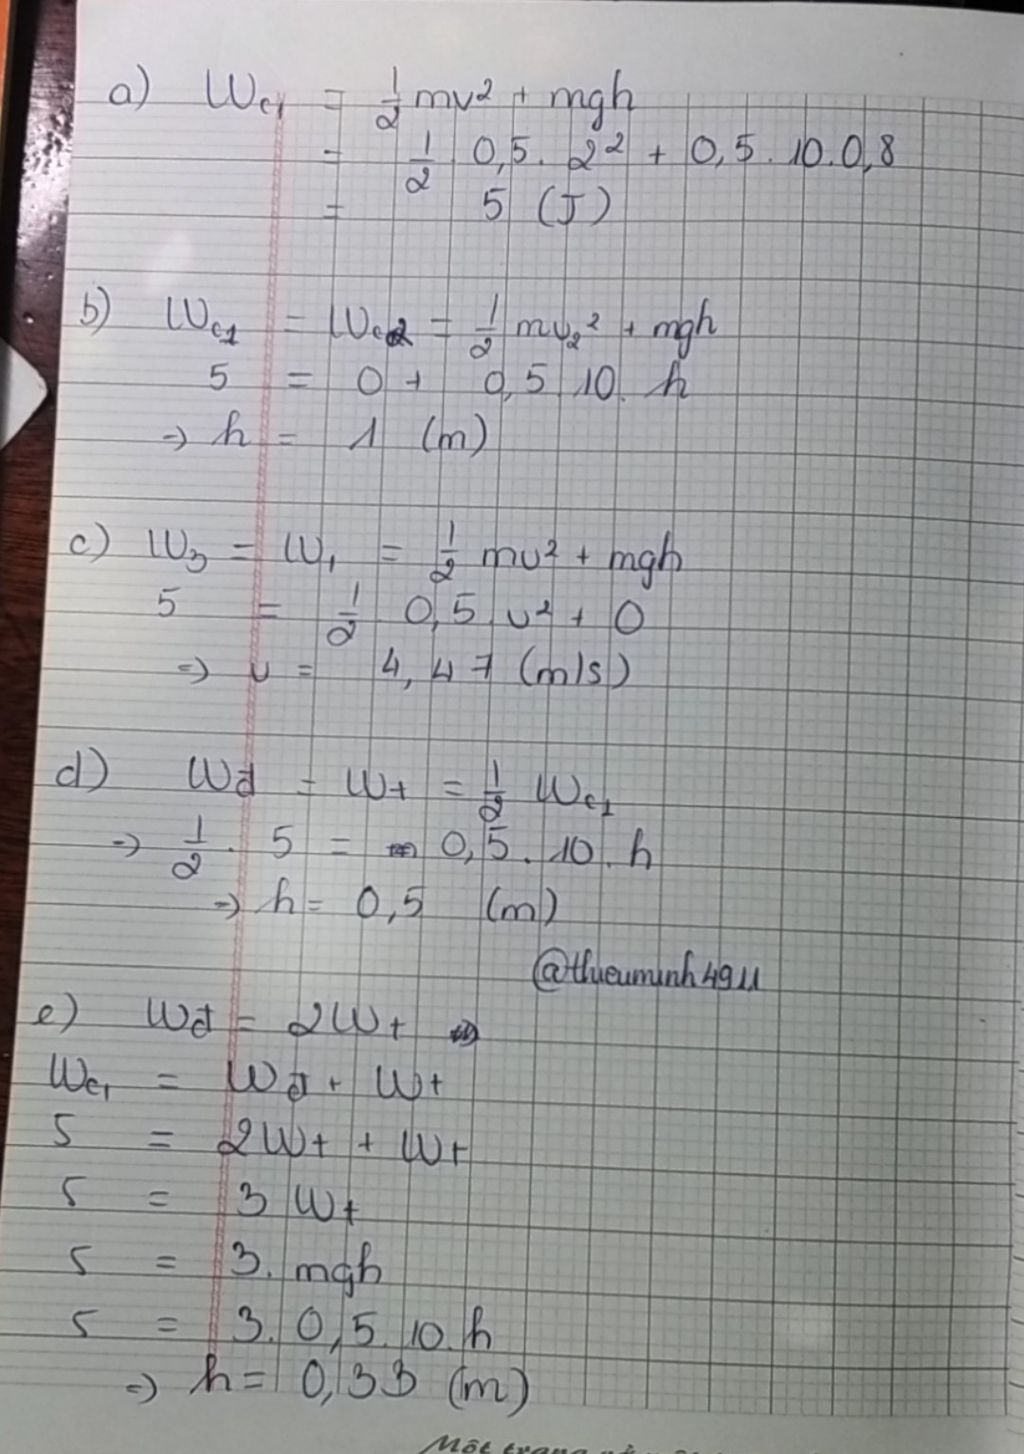 a) Wc1 = 1/2 mv² + mgh
= 1/2 0,5. 2² + 0,5. 10. 0,8
= 5 (J)
b) Wc1 = Wc2 = 1/2 mv₂² + mgh
5 = 0 + 0,5 10. h
→ h = 1 (m)
c) W3 = W1 = 1/2 mv² + mgh
5 = 1/2 0,5 v² + 0
=> v = 4,47 (m/s)
d) Wđ = Wt = 1/2 Wc1
→ 1/2. 5 = 0,5. 10. h
→ h = 0,5 (m)
@thueuminh4911
e) Wđ = 2Wt
Wc1 = Wđ + Wt
5 = 2Wt + Wt
5 = 3 Wt
5 = 3. mgh
5 = 3. 0,5. 10. h
=> h = 0,33 (m)
Một trang